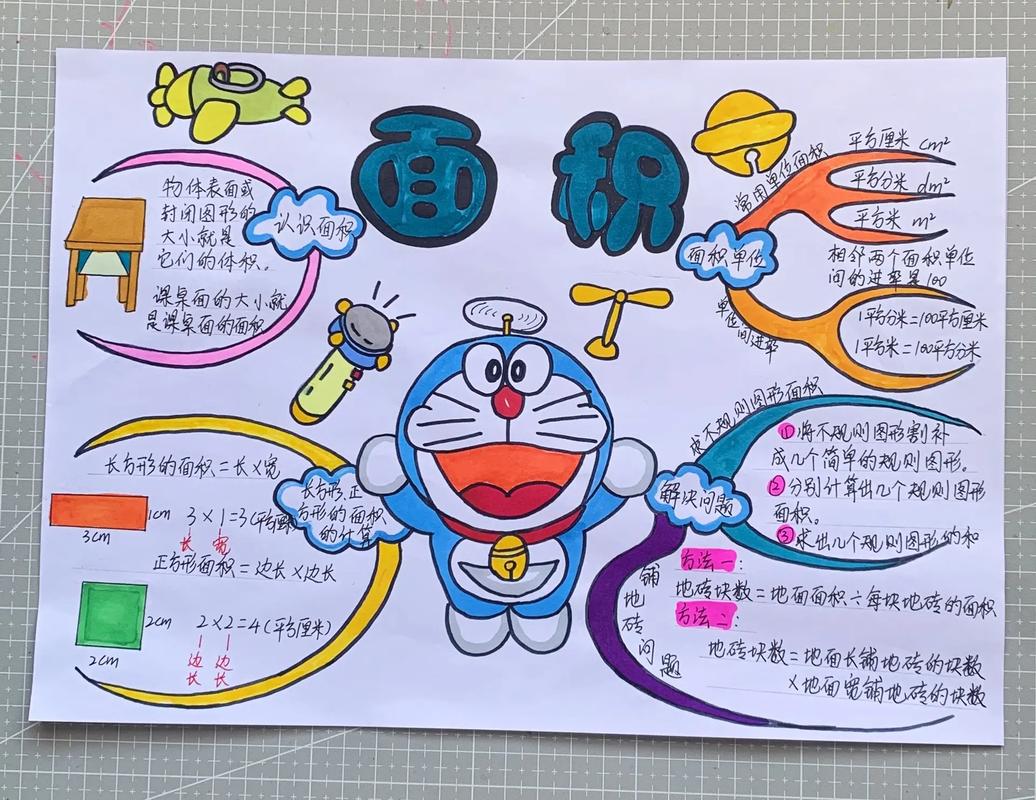 面积
认识面积
物体表面或
封闭图形的
大小就是
它们的体积。
课桌面的大小就
是课桌面的面积
面积单位
常用单位面积
平方厘米 cm²
平方分米 dm²
平方米 m²
相邻两个面积单位
间的进率是100
单位间进率
1平方分米=100平方厘米
1平方米=100平方分米
长方形.正
方形的面积
的计算
长方形的面积=长×宽
1cm
3cm
3×1=3(平方厘米)
长 宽
正方形面积=边长×边长
2cm
2cm
2×2=4(平方厘米)
边 边
长 长
解决问题
求不规则图形面积
①将不规则图形割补
成几个简单的规则图形。
②分别计算出几个规则图形
面积。
③求出几个规则图形的和
铺地砖问题
方法一:
地砖块数=地面面积÷每块地砖的面积
方法二:
地砖块数=地面长铺地砖的块数
×地面宽铺地砖的块数